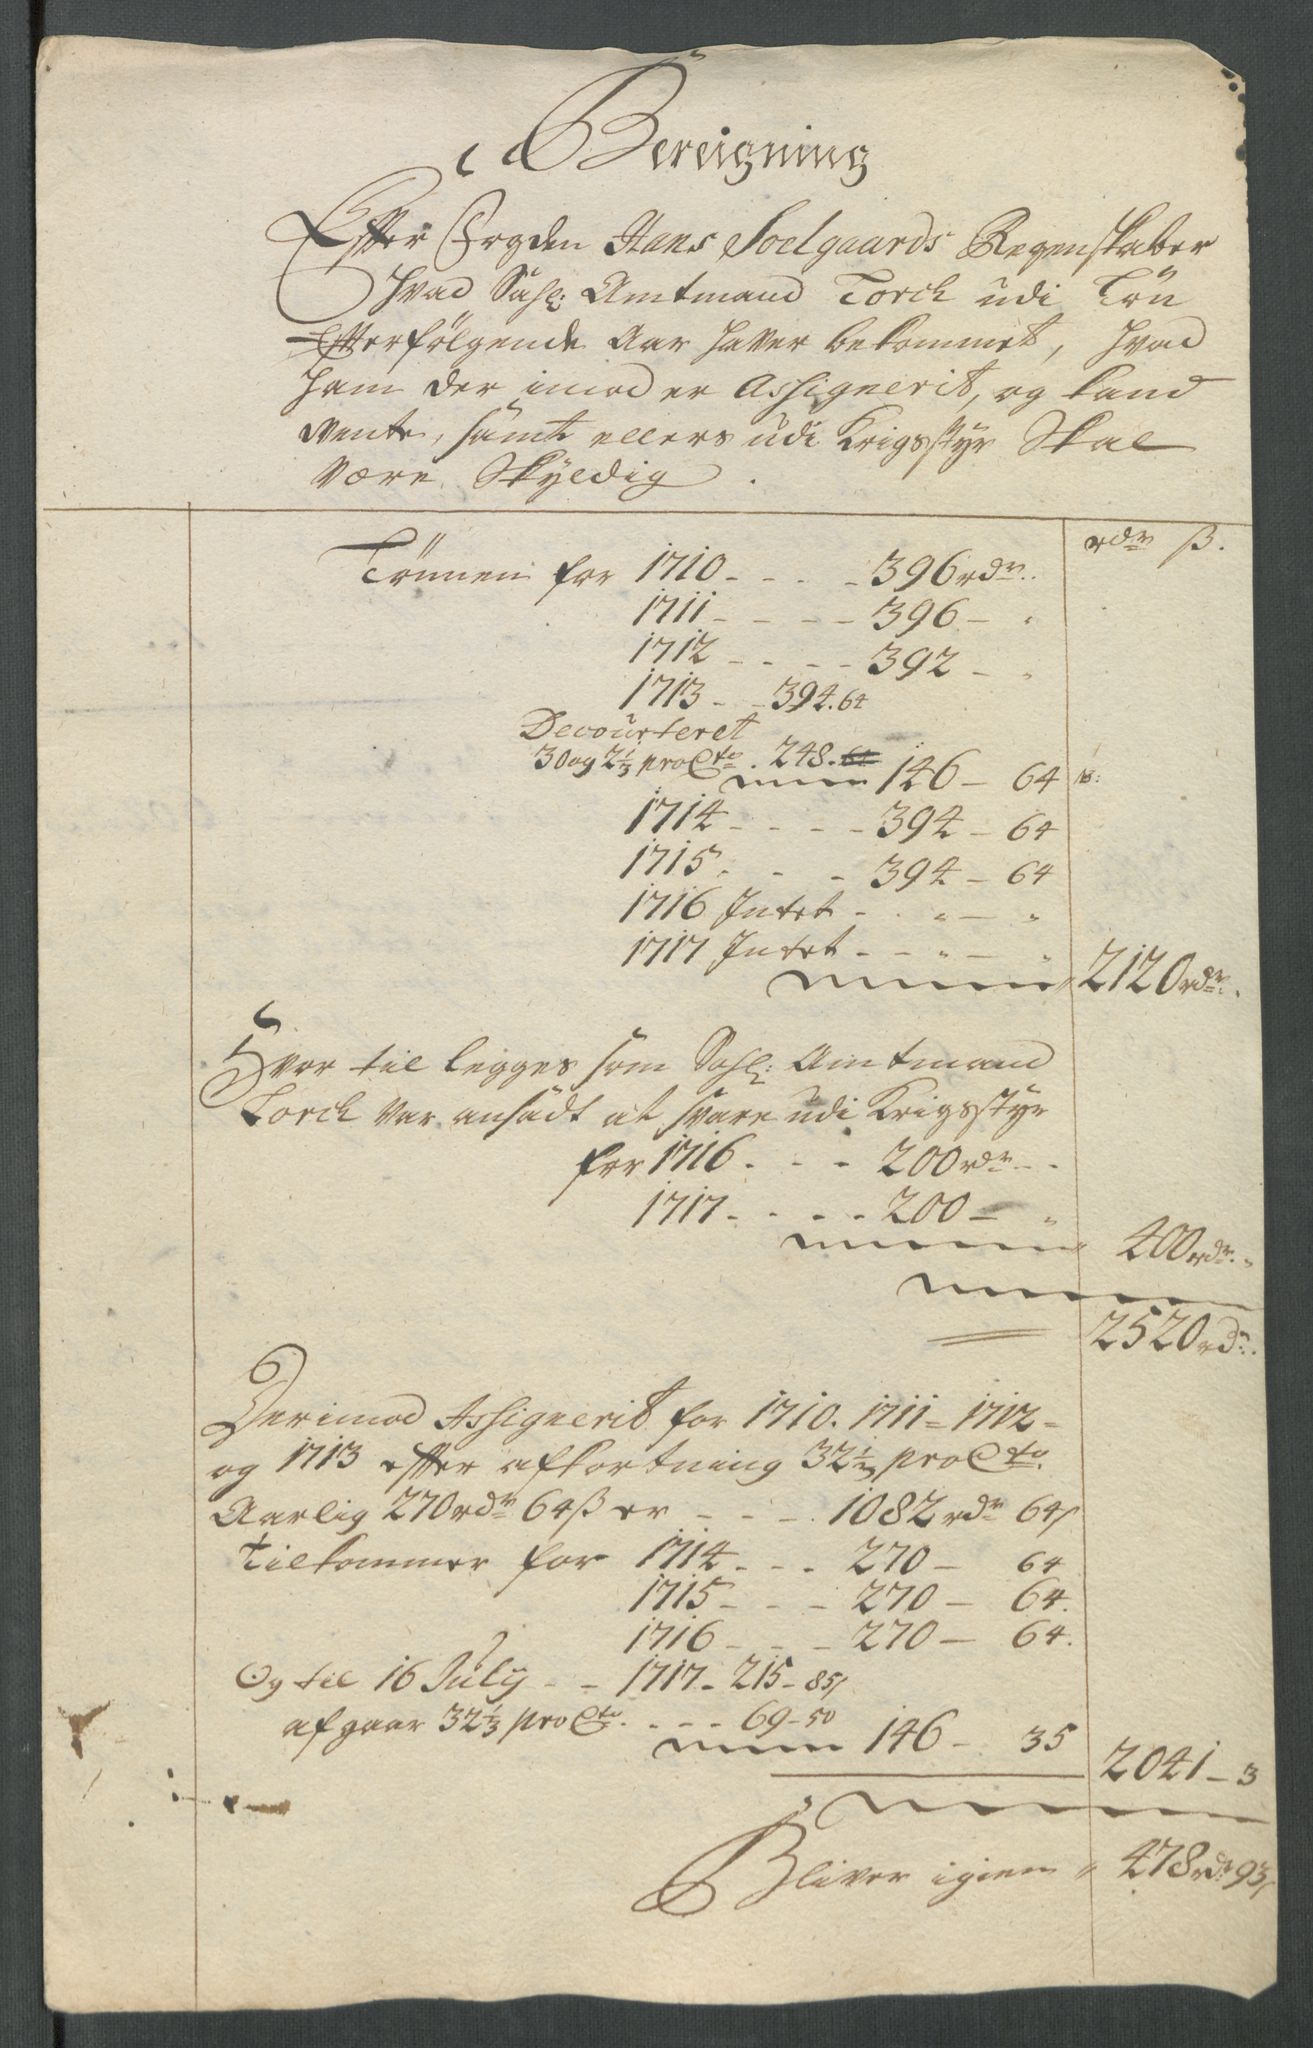 Bereigning
Efter Fogden Hans Soelgaards Regenskaber
hvad Sahl: Amtmand Torch udi Lön
Efterfölgende Aar haver bekommet, hvad
ham der imod er Assignerit, og kand
vente, samt ellers udi Krigsstyr Skal
være Skyldig.
rdr ß.
Lönnen for 1710 - - - - 396 rdr..
1711 - - - - 396 - "
1712 - - - - 392 - "
1713 - - 394. 64
Decourteret
30 og 2 1/3 pro Cto . 248. 64
146 - 64
1714 - - - - 394 - 64
1715 . - - 394 - 64
1716 Intet - . " - "
1717 Intet - - " - "
2120 rdr.
Hvor til legges som Sahl: Amtmand
Torch var ansadt at svare udi Krigsstyr
for 1716 . - - 200 rdr - .
1717 - - - - 200 - "
400 rdr. "
2520 rdr.
Derimod Assignerit for 1710. 1711 = 1712 =
og 1713 efter afkortning 32 1/3 pro Cto.
Aarlig 270 rdr 64 ß er - - - 1082 rdr 64 ß
Tilkommer for 1714 - - - 270 - 64
1715 - - - 270 - 64.
1716 - - - 270 - 64.
Og til 16 July - - 1717 - 215 - 85 ß
afgaar 32 1/3 pro Cto. - - - 69 - 50
146 - 35
2041 - 3
Bliver igien " 478 rdr 93 ß